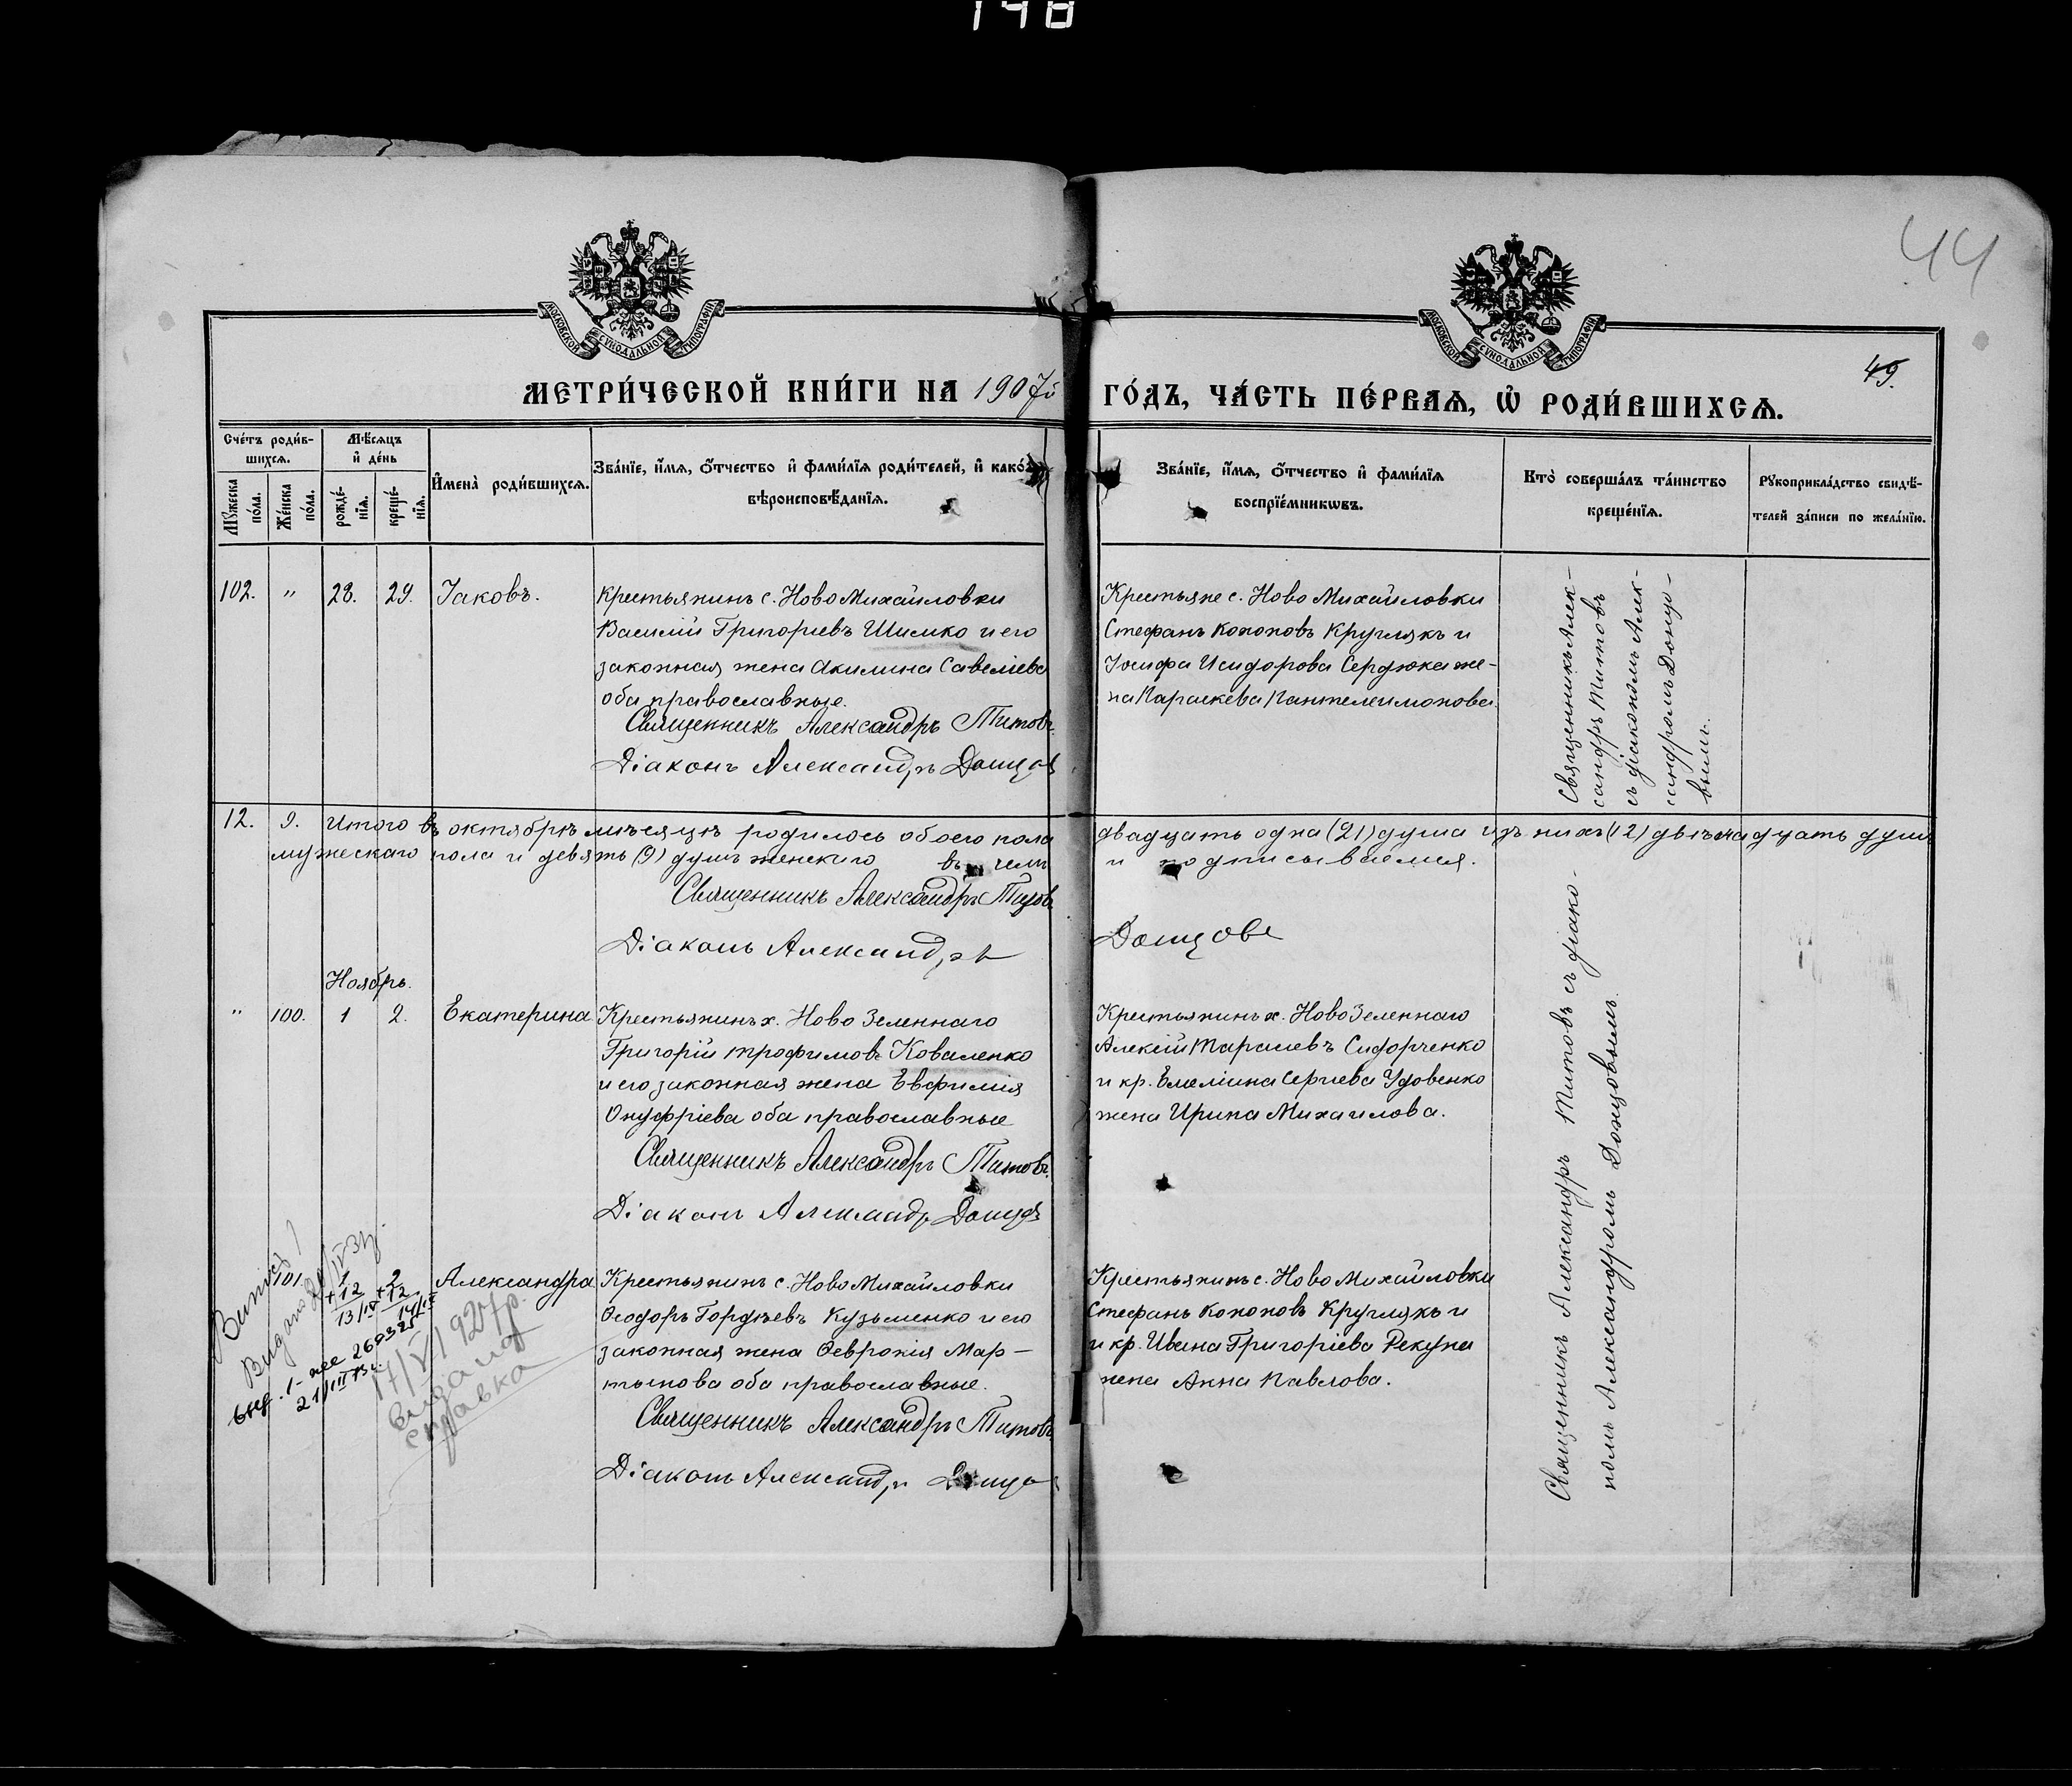 148
44
МОСКОВСКОЙ СѴНОДАЛЬНОЙ ТИПОГРАФІИ
МОСКОВСКОЙ СѴНОДАЛЬНОЙ ТИПОГРАФІИ
49.
МЕТРИ́ЧЕСКОЙ КНИ́ГИ НА 1907й ГО́ДЪ, ЧА́СТЬ ПЕ́РВАѦ, Ѡ҆ РОДИ́ВШИХСѦ.
Сче́тъ роди́в-
шихсѧ.
Мѣ́сѧцъ
и҆ де́нь
И҆мена̀ роди́вшихсѧ.
Зва́нїе, и҆́мѧ, ѻ҆́тчество и҆ фами́лїѧ роди́телей, и҆
вѣроисповѣ́данїѧ.
Зва́нїе, и҆́мѧ, ѻ҆́тчество и҆ фами́лїѧ
воспрїе́мникѡвъ.
Кто̀ соверша́лъ та́инство
креще́нїѧ.
Рꙋкоприкла́дство свидѣ́-
телей за́писи по жела́нїю.
Мꙋ́жеска
по́ла.
Же́нска
по́ла.
рожде́-
нїѧ.
креще́-
нїѧ.
102. " 28. 29. Іаковъ.
Крестьянинъ с. Ново Михайловки
Василій Григоріевъ Шишко и его
законная жена Акилина Савеліева
оба православные.
Священникъ Александръ Титовъ.
Діаконъ Александръ Донцовъ
Крестьяне с. Ново Михайловки
Стефанъ Кононовъ Круглякъ и
Іосифа Исидорова Сердюка же-
на Параскева Пантелеимонова.
Священникъ Алек-
сандръ Титовъ
съ діакономъ Алек-
сандромъ Донцо-
вымъ.
12. 9. Итого въ октябрѣ мѣсяцѣ родилось обоего пола двадцать одна (21) душа изъ нихъ (12) двѣнадцать душъ
мужескаго пола и девять (9) душъ женскаго въ чемъ и подписываемся.
Священникъ Александръ Титовъ
Діаконъ Александръ Донцовъ
Ноябрь.
" 100. 1 2. Екатерина
Крестьянинъ х. Ново Зеленнаго
Григорій Трофимовъ Коваленко
и его законная жена Евфимія
Онуфріева оба православные
Священникъ Александръ Титовъ.
Діаконъ Александръ Донцовъ
Крестьянинъ х. Ново Зеленнаго
Алексій Тарасіевъ Сидорченко
и кр. Емеліана Сергіева Удовенко
жена Ирина Михаилова.
Священникъ Александръ Титовъ съ діако-
номъ Александромъ Донцовымъ.
101. 1 2 Александра
+12 +12
13/ІІ 14/ІІ
Крестьянинъ с. Ново Михайловки
Ѳеодоръ Гордѣевъ Кузьменко и его
законная жена Ѳеврокія Мар-
тынова оба православные.
Священникъ Александръ Титовъ
Діаконъ Александръ
Крестьянинъ с. Ново Михайловки
Стефанъ Кононовъ Круглякъ и
и кр. Ивана Григоріева Рекуна
жена Анна Павлова.
Видано
17/V 1927р.
видана
справка